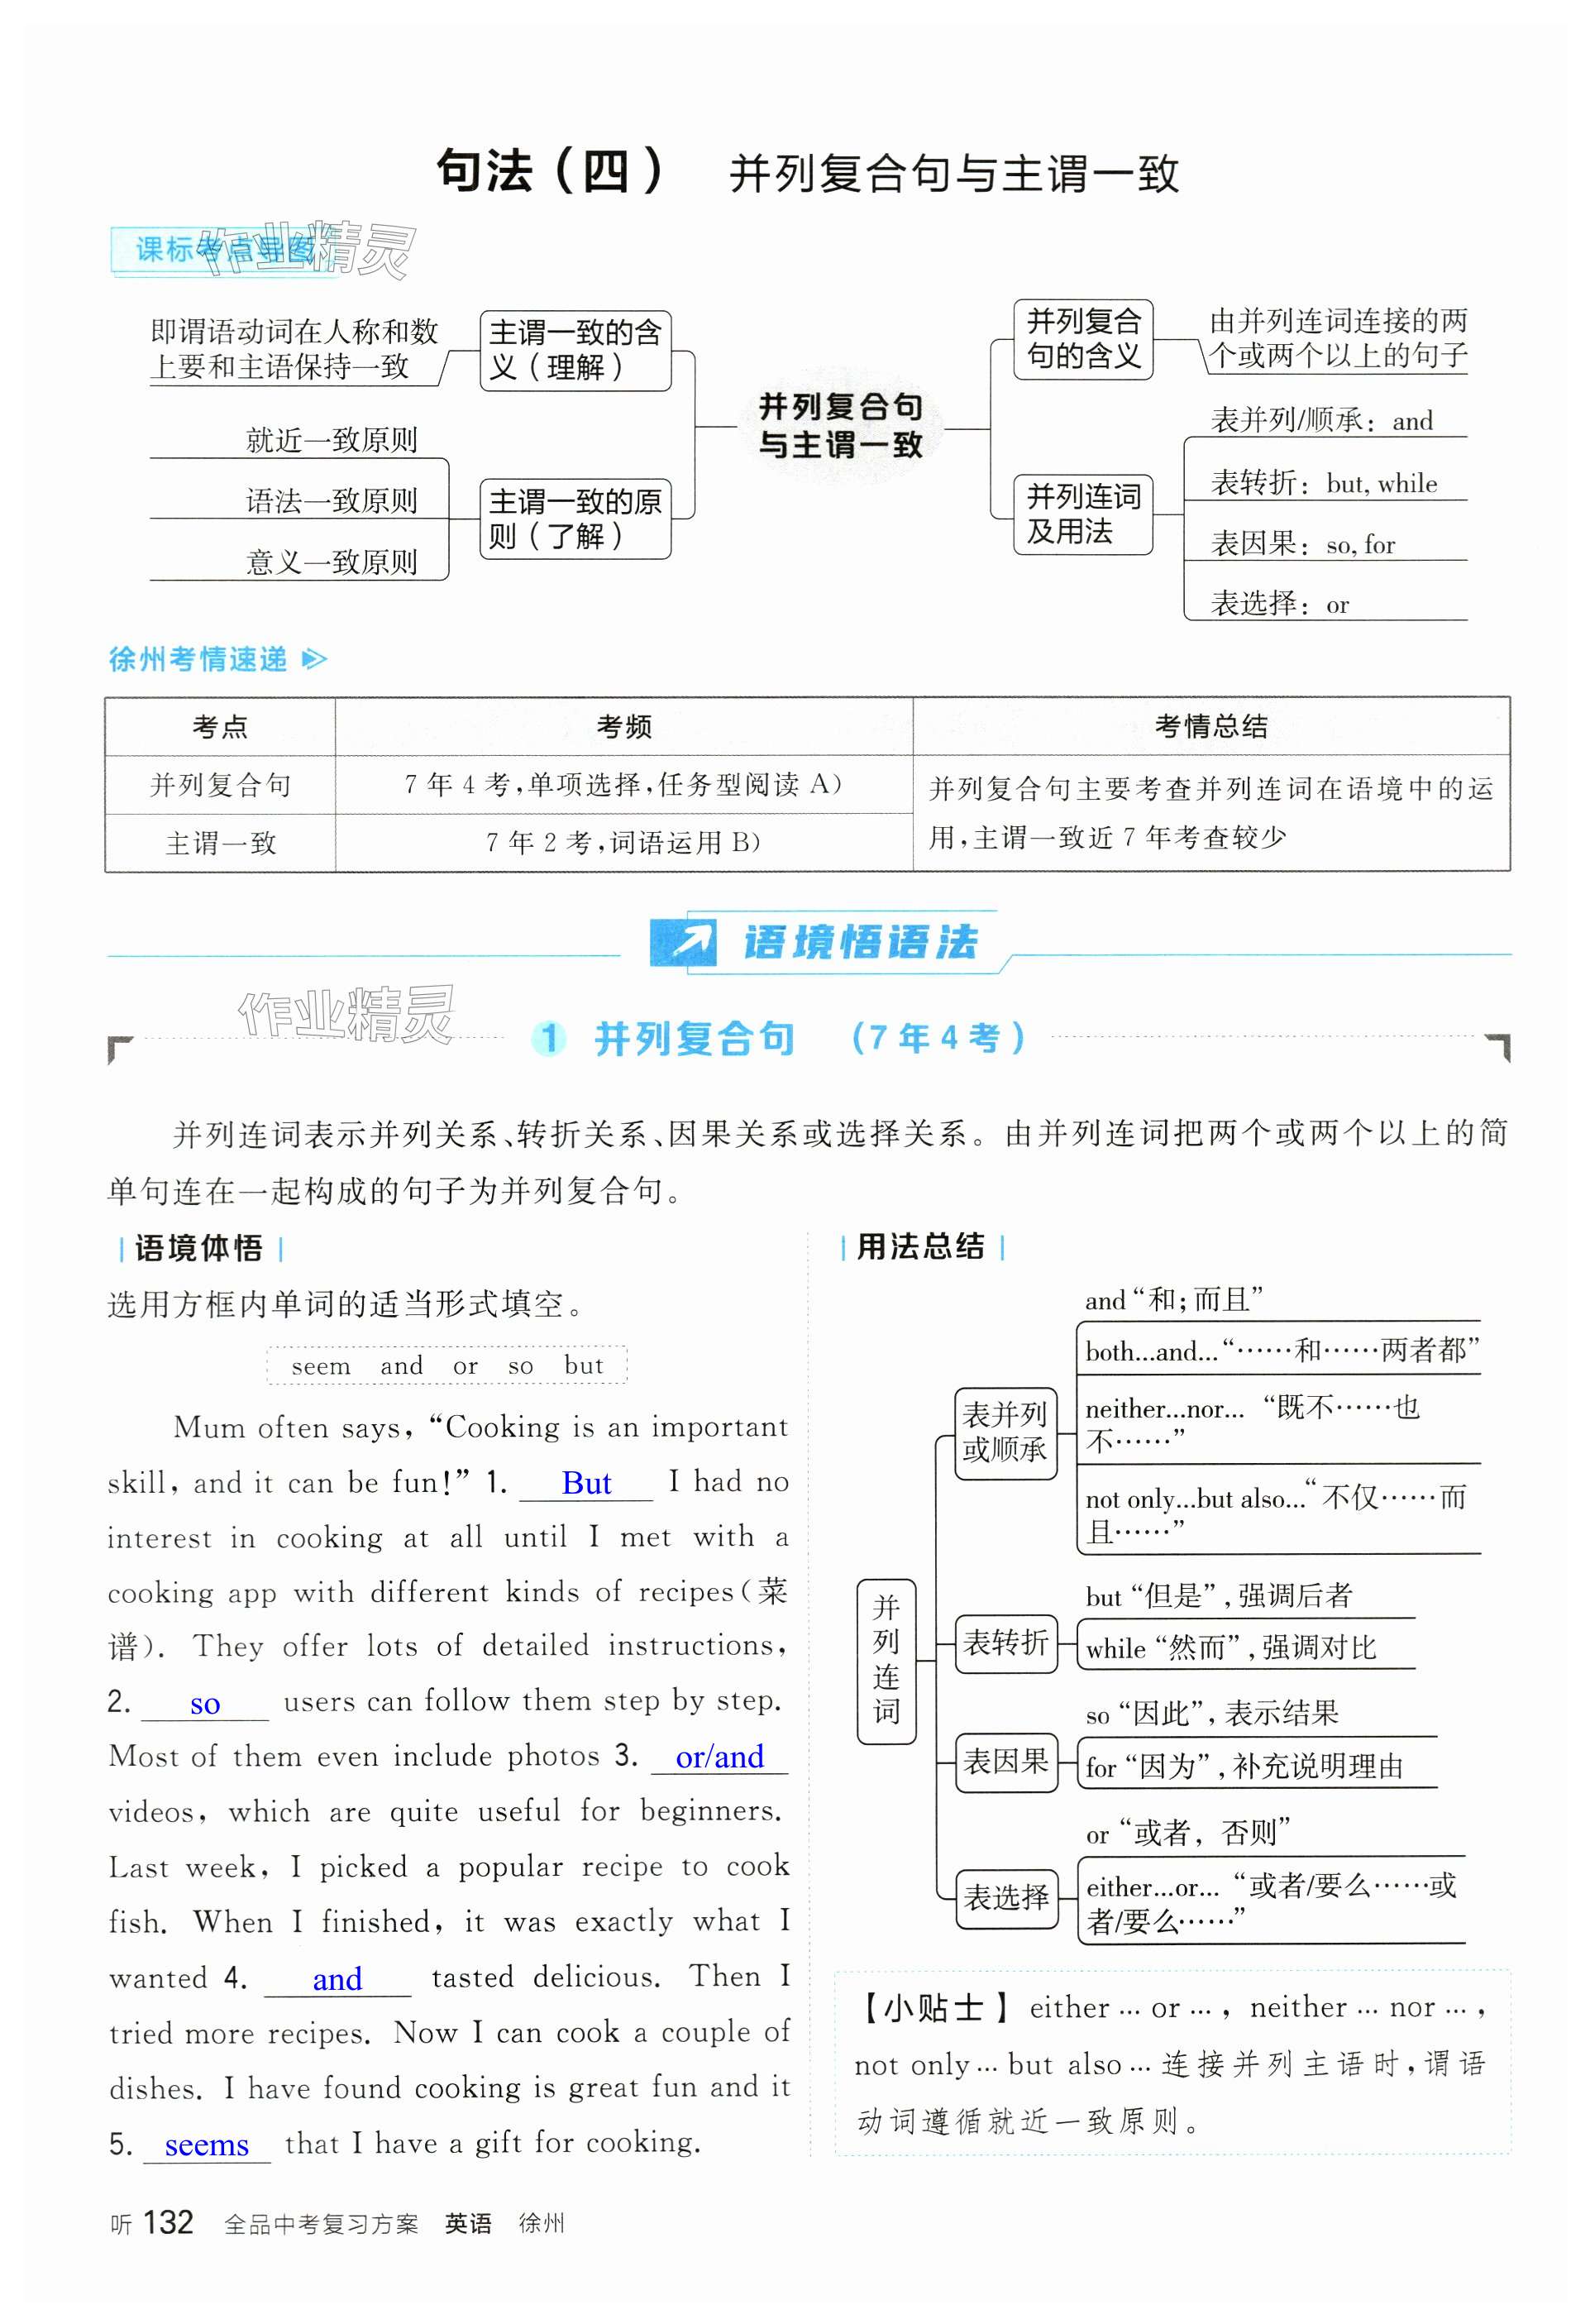 句法（四） 并列复合句与主谓一致
课标考点导图
作业精灵
即谓语动词在人称和数
上要和主语保持一致
主谓一致的含
义（理解）
就近一致原则
语法一致原则
意义一致原则
主谓一致的原
则（了解）
并列复合句
与主谓一致
并列复合
句的含义
由并列连词连接的两
个或两个以上的句子
并列连词
及用法
表并列/顺承：and
表转折：but, while
表因果：so, for
表选择：or
徐州考情速递
考点 考频 考情总结
并列复合句 7 年 4 考，单项选择，任务型阅读 A） 并列复合句主要考查并列连词在语境中的运
主谓一致 7 年 2 考，词语运用 B） 用，主谓一致近 7 年考查较少
语境悟语法
作业精灵
1 并列复合句 （7 年 4 考）
并列连词表示并列关系、转折关系、因果关系或选择关系。由并列连词把两个或两个以上的简
单句连在一起构成的句子为并列复合句。
语境体悟
选用方框内单词的适当形式填空。
seem and or so but
Mum often says, “Cooking is an important
skill, and it can be fun!” 1. But I had no
interest in cooking at all until I met with a
cooking app with different kinds of recipes（菜
谱）. They offer lots of detailed instructions,
2. so users can follow them step by step.
Most of them even include photos 3. or/and
videos, which are quite useful for beginners.
Last week, I picked a popular recipe to cook
fish. When I finished, it was exactly what I
wanted 4. and tasted delicious. Then I
tried more recipes. Now I can cook a couple of
dishes. I have found cooking is great fun and it
5. seems that I have a gift for cooking.
用法总结
并列连词
表并列
或顺承
and “和；而且”
both...and... “……和……两者都”
neither...nor... “既不……也
不……”
not only...but also... “不仅……而
且……”
表转折
but “但是”，强调后者
while “然而”，强调对比
表因果
so “因此”，表示结果
for “因为”，补充说明理由
表选择
or “或者，否则”
either...or... “或者/要么……或
者/要么……”
【小贴士】either … or … , neither … nor … ,
not only … but also … 连接并列主语时，谓语
动词遵循就近一致原则。
听 132 全品中考复习方案 英语 徐州